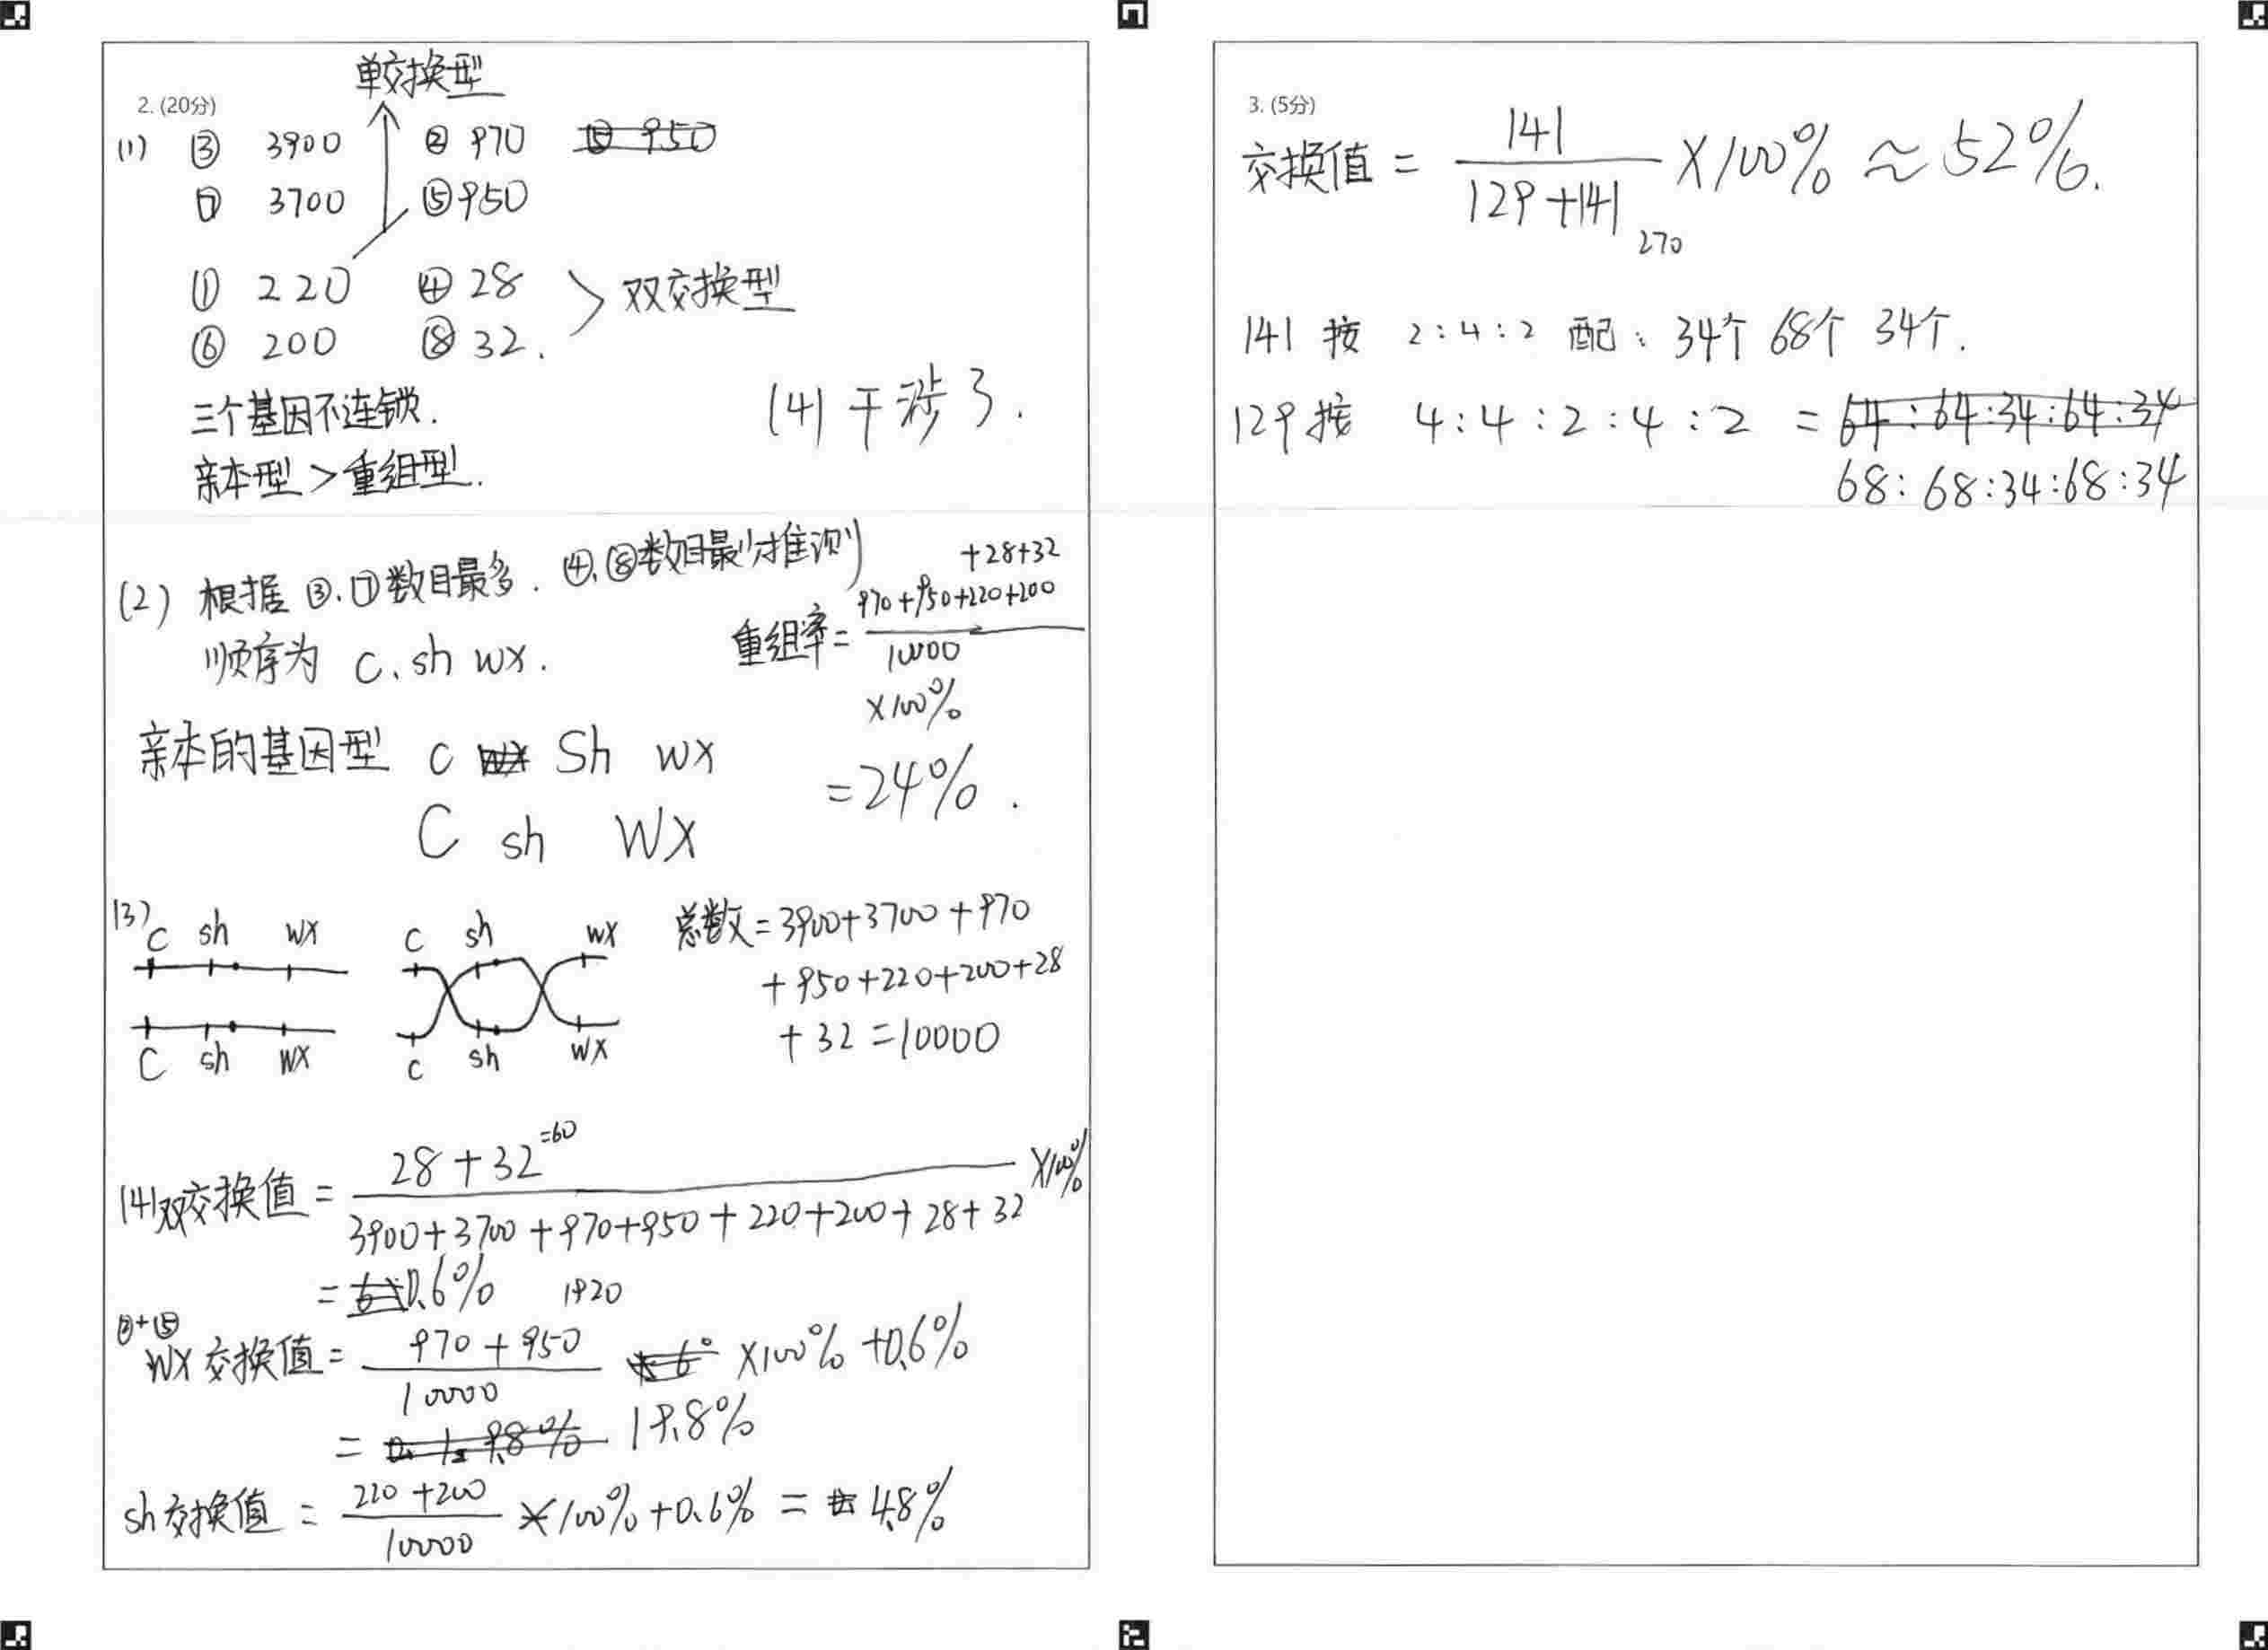 单交换型
2. (20分)
(1) ③ 3900 ② 970
⑦ 3700 ⑤ 950
① 220 ④ 28 > 双交换型
⑥ 200 ⑧ 32.
三个基因不连锁.
亲本型 > 重组型.
(4) 干涉了.
(2) 根据 ③.⑦数目最多. ④.⑧数目最少推测
顺序为 C、sh wx.
重组率 = 970+950+220+200+28+32 / 10000
×100%
= 24%.
亲本的基因型 c Sh wx
C sh WX
(3) C sh wx c sh wx
C sh wx c sh wx
总数 = 3900+3700+970
+950+220+200+28
+32 = 10000
(4) 双交换值 = 28+32 =60 / 3900+3700+970+950+220+200+28+32 ×100%
= 0.6% 1920
②+⑤
wx 交换值 = 970+950 / 10000 ×100% +0.6%
= 19.8%
sh交换值 = 220+200 / 10000 ×100% +0.6% = 4.8%
3. (5分)
交换值 = 141 / 129+141 ×100% ≈ 52%.
270
141 按 2:4:2 配: 34个 68个 34个.
129按 4:4:2:4:2 =
68:68:34:68:34